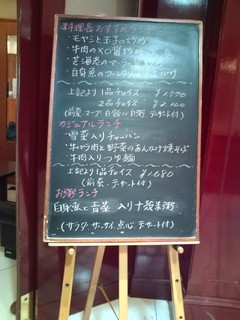 料理長おすすめランチ
・モヤシと玉子の炒め
・牛肉のXO醤炒め
・芝海老のマーラー
・白身魚の
上記より1品チョイス ¥1,570
2品チョイス ¥2,100
(前菜 スープ 白飯or白粥 デザート付)
カジュアルランチ
・雪菜入りチャーハン
・牛バラ肉と野菜のあんかけ焼そば
・牛肉入りつゆ麺
上記より1品チョイス ¥1,680
(前菜 デザート付)
お粥ランチ
白身魚と青菜入り十穀米粥
(サラダ ザーサイ 点心 デザート付)